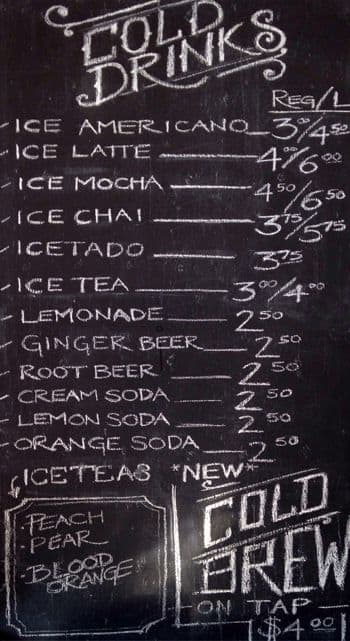 COLD
DRINKS
REG/L
- ICE AMERICANO 3⁰⁰/4⁵⁰
- ICE LATTE 4⁰⁰/6⁰⁰
- ICE MOCHA 4⁵⁰/6⁵⁰
- ICE CHAI 3⁷⁵/5⁷⁵
- ICETADO 3⁷⁵
- ICE TEA 3⁰⁰/4⁰⁰
- LEMONADE 2⁵⁰
- GINGER BEER 2⁵⁰
- ROOT BEER 2⁵⁰
- CREAM SODA 2⁵⁰
- LEMON SODA 2⁵⁰
- ORANGE SODA 2⁵⁰
ICETEAS
- PEACH
- PEAR
- BLOOD
ORANGE
*NEW*
COLD
BREW
- ON TAP -
$4⁰⁰